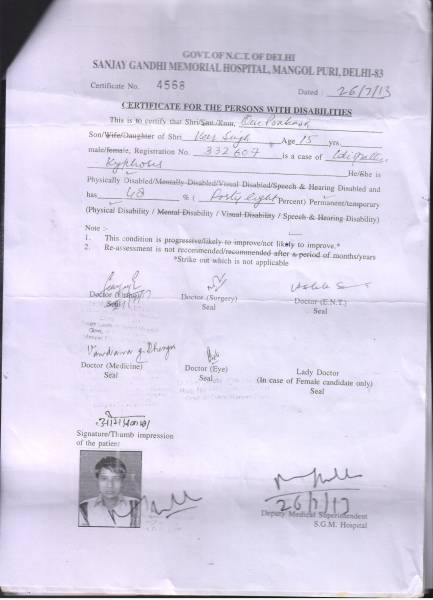 GOVT. OF N.C.T. OF DELHI
SANJAY GANDHI MEMORIAL HOSPITAL, MANGOL PURI, DELHI-83
Certificate No. 4568 Dated : 26/7/13
CERTIFICATE FOR THE PERSONS WITH DISABILITIES
This is to certify that Shri/Smt./Kum,
Son/Wife/Daughter of Shri Veer Singh Age 15 yrs.
male/female, Registration No. 332607 is a case of
Kyphosis He/She is
Physically Disabled/Mentally Disabled/Visual Disabled/Speech & Hearing Disabled and
has 48 % ( Forty eight Percent) Permanent/temporary
(Physical Disability / Mental Disability / Visual Disability / Speech & Hearing Disability)
Note :-
1. This condition is progressive/likely to improve/not likely to improve.*
2. Re-assessment is not recommended/recommended after a period of months/years
*Strike out which is not applicable
Doctor Doctor (Surgery) Doctor (E.N.T.)
Seal Seal Seal
Doctor (Medicine) Doctor (Eye) Lady Doctor
Seal Seal (In case of Female candidate only)
Seal
Signature/Thumb impression
of the patient
26/7/13
Deputy Medical Superintendent
S.G.M. Hospital